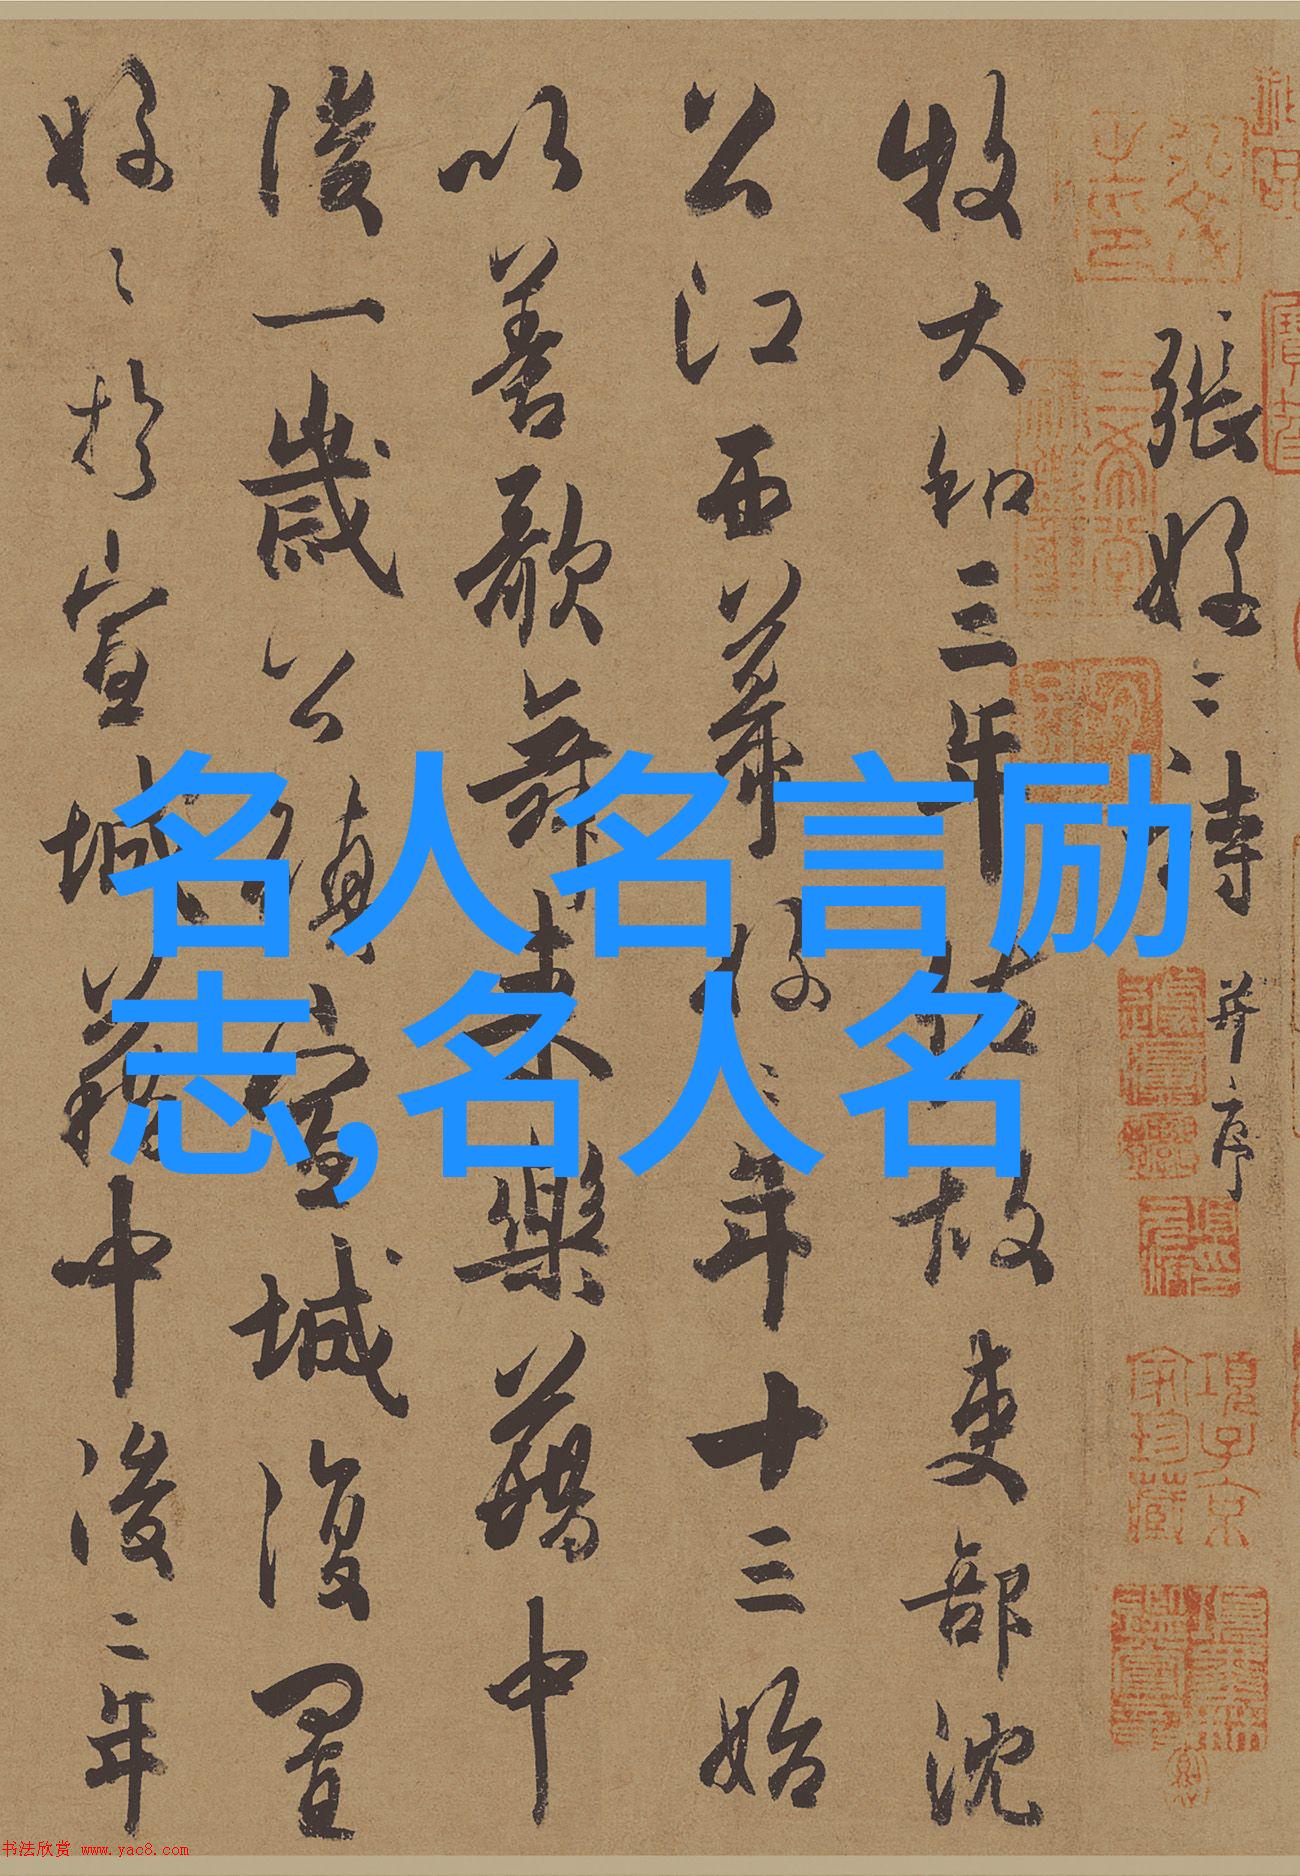 張好〻詩 并序
牧大和三年佐故吏部沈
公江西幕好〻年十三始
以善歌舞来樂籍中
後一歲公鎮宣城復置
好〻於宣城籍中後二年
名人名言励
志,名人名
項子京
家珍藏
书法欣赏 www.yac8.com